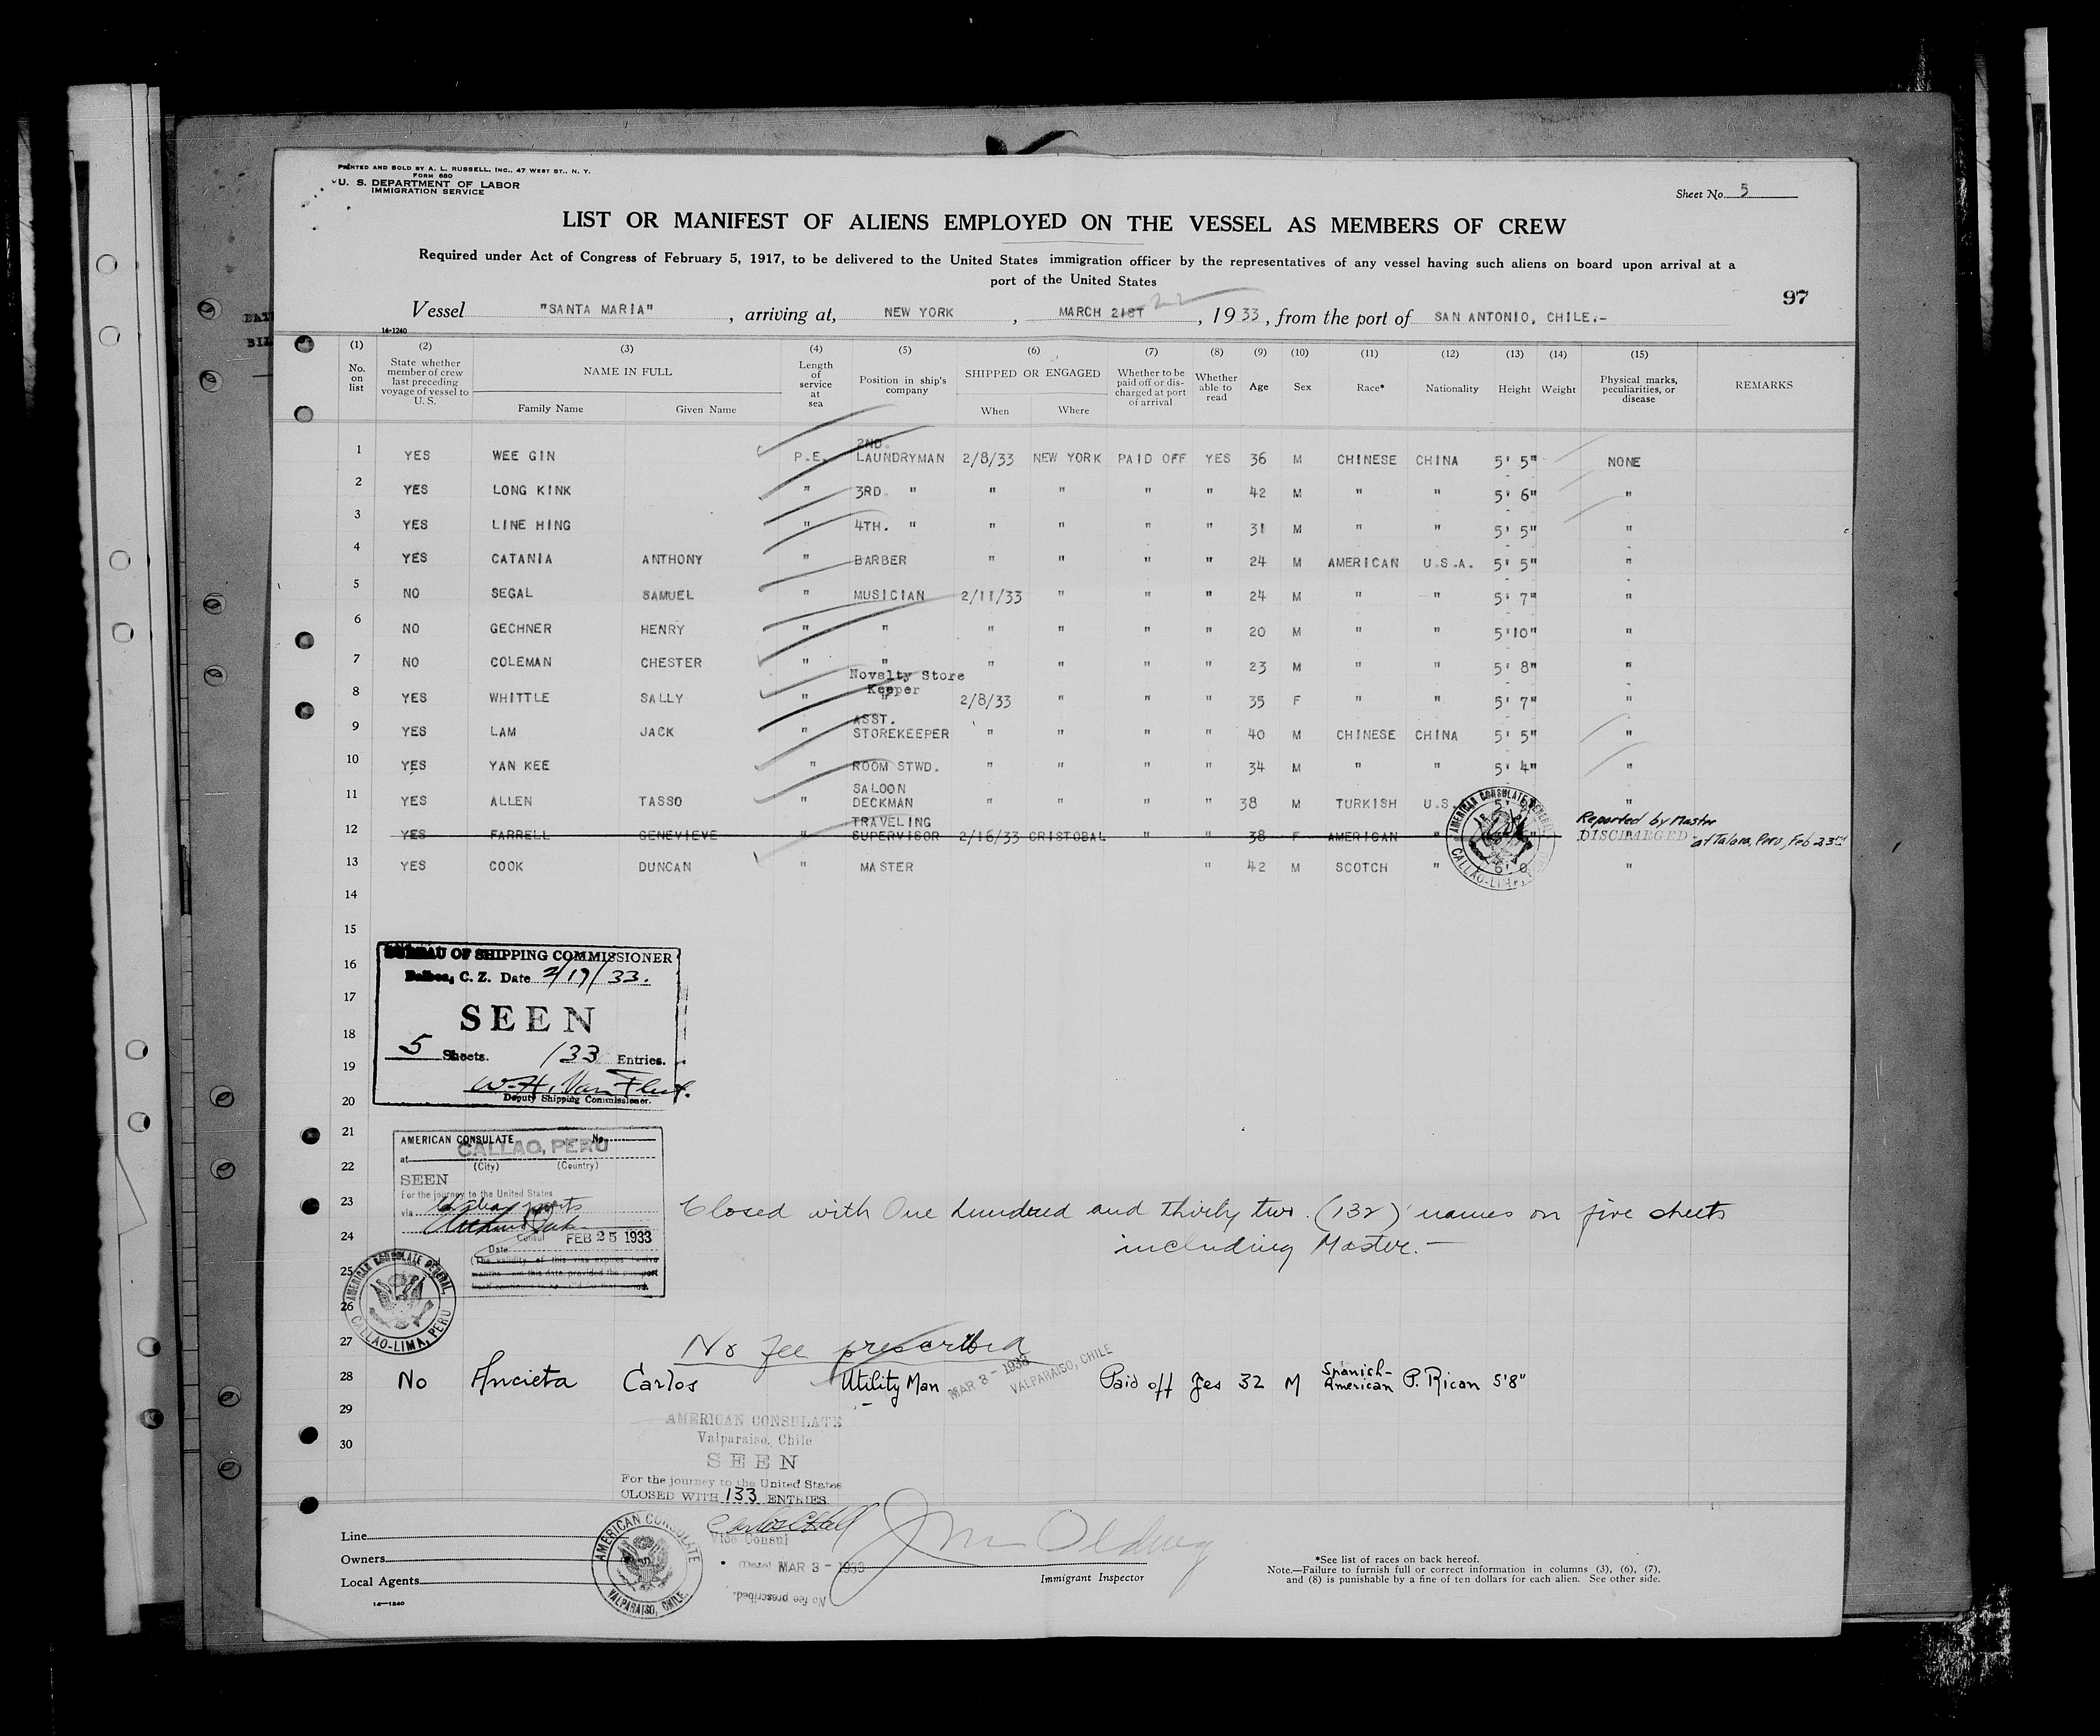 PRINTED AND SOLD BY A. L. RUSSELL, INC., 47 WEST ST., N. Y.
FORM 680
U. S. DEPARTMENT OF LABOR
IMMIGRATION SERVICE
Sheet No. 5
LIST OR MANIFEST OF ALIENS EMPLOYED ON THE VESSEL AS MEMBERS OF CREW
Required under Act of Congress of February 5, 1917, to be delivered to the United States immigration officer by the representatives of any vessel having such aliens on board upon arrival at a
port of the United States
97
Vessel "SANTA MARIA", arriving at, NEW YORK, MARCH 21ST 22, 1933, from the port of SAN ANTONIO, CHILE.-
14-1240
(1) (2) (3) (4) (5) (6) (7) (8) (9) (10) (11) (12) (13) (14) (15)
No. on list
State whether member of crew last preceding voyage of vessel to U. S.
NAME IN FULL
Family Name Given Name
Length of service at sea
Position in ship's company
SHIPPED OR ENGAGED
When Where
Whether to be paid off or discharged at port of arrival
Whether able to read
Age Sex Race* Nationality Height Weight
Physical marks, peculiarities, or disease
REMARKS
1 YES WEE GIN P.E. 2ND. LAUNDRYMAN 2/8/33 NEW YORK PAID OFF YES 36 M CHINESE CHINA 5' 5" NONE
2 YES LONG KINK " 3RD. " " " " " 42 M " " 5' 6" "
3 YES LINE HING " 4TH. " " " " " 31 M " " 5' 5" "
4 YES CATANIA ANTHONY " BARBER " " " " 24 M AMERICAN U.S.A. 5' 5" "
5 NO SEGAL SAMUEL " MUSICIAN 2/11/33 " " " 24 M " " 5' 7" "
6 NO GECHNER HENRY " " " " " " 20 M " " 5'10" "
7 NO COLEMAN CHESTER " " " " " " 23 M " " 5' 8" "
8 YES WHITTLE SALLY " Novelty Store Keeper " 2/8/33 " " " 35 F " " 5' 7" "
9 YES LAM JACK " ASST. STOREKEEPER " " " " 40 M CHINESE CHINA 5' 5" "
10 YES YAN KEE " ROOM STWD. " " " " 34 M " " 5' 4" "
11 YES ALLEN TASSO " SALOON DECKMAN " " " " 38 M TURKISH U.S. "
12 YES FARRELL GENEVIEVE " TRAVELING SUPERVISOR 2/16/33 CRISTOBAL " " 38 F AMERICAN " DISCHARGED
Reported by Master
at Talara, Peru, Feb 23rd
13 YES COOK DUNCAN " MASTER " 42 M SCOTCH " 6' 0 "
AMERICAN CONSULATE GENERAL
CALLAO-LIMA, PERU
14
15
16
17
18
19
20
BUREAU OF SHIPPING COMMISSIONER
Balboa, C. Z. Date 2/17/33.
SEEN
5 Sheets. 133 Entries.
W. H. Van Fleet.
Deputy Shipping Commissioner.
21
22
23
24
25
26
AMERICAN CONSULATE No.
at CALLAO, PERU
(City) (Country)
SEEN
For the journey to the United States
via
Consul FEB 25 1933
Date
(The validity of this visa expires twelve
months from this date provided the passport
AMERICAN CONSULATE GENERAL,
CALLAO-LIMA, PERU
Closed with One hundred and thirty two (132) names on five sheets
including Master.-
27
No fee prescribed
MAR 3 - 1933
VALPARAISO, CHILE
28 No Ancieta Carlos Utility Man Paid off Yes 32 M Spanish-American P. Rican 5'8"
29
30
AMERICAN CONSULATE
Valparaiso, Chile
SEEN
For the journey to the United States
CLOSED WITH 133 ENTRIES
Vice Consul
(Date) MAR 3 - 1933
No fee prescribed.
AMERICAN CONSULATE
VALPARAISO, CHILE.
Line
Owners
Local Agents
14-1240
Immigrant Inspector
*See list of races on back hereof.
Note.—Failure to furnish full or correct information in columns (3), (6), (7),
and (8) is punishable by a fine of ten dollars for each alien. See other side.